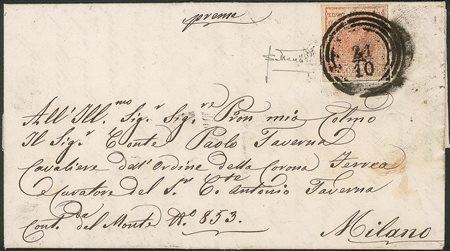 preme
24
10
All'Ill.mo Sig.r Sig.re Pron mio Colmo
Il Sig.r Conte Paolo Taverna
Cavaliere dell'Ordine della Corona Ferrea
e Curatore del S.r C.te Antonio Taverna
Cont.da del Monte N.o 853.
Milano